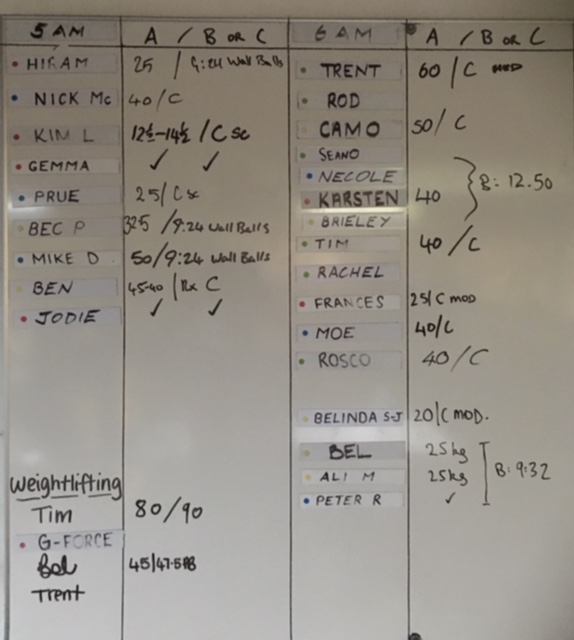 5 AM A / B OR C
HIRAM 25 / 9:24 Wall Balls
NICK Mc 40/C
KIM L 12½-14½ / C sc
GEMMA ✓ ✓
PRUE 25/C sc
BEC P 325 /9:24 Wall Balls
MIKE D 50/9:24 Wall Balls
BEN 45-40 / Rx C
JODIE ✓ ✓
Weightlifting
Tim 80/90
G-FORCE
Bel 45/47.5 PB
Trent
6 AM A / B OR C
TRENT 60/C
ROD
CAMO 50/C
SEANO
NECOLE B: 12.50
KARSTEN 40
BRIELEY
TIM 40/C
RACHEL
FRANCES 25/C MOD
MOE 40/C
ROSCO 40/C
BELINDA S-J 20/C MOD.
BEL 25kg
ALI M 25kg B: 9:32
PETER R ✓